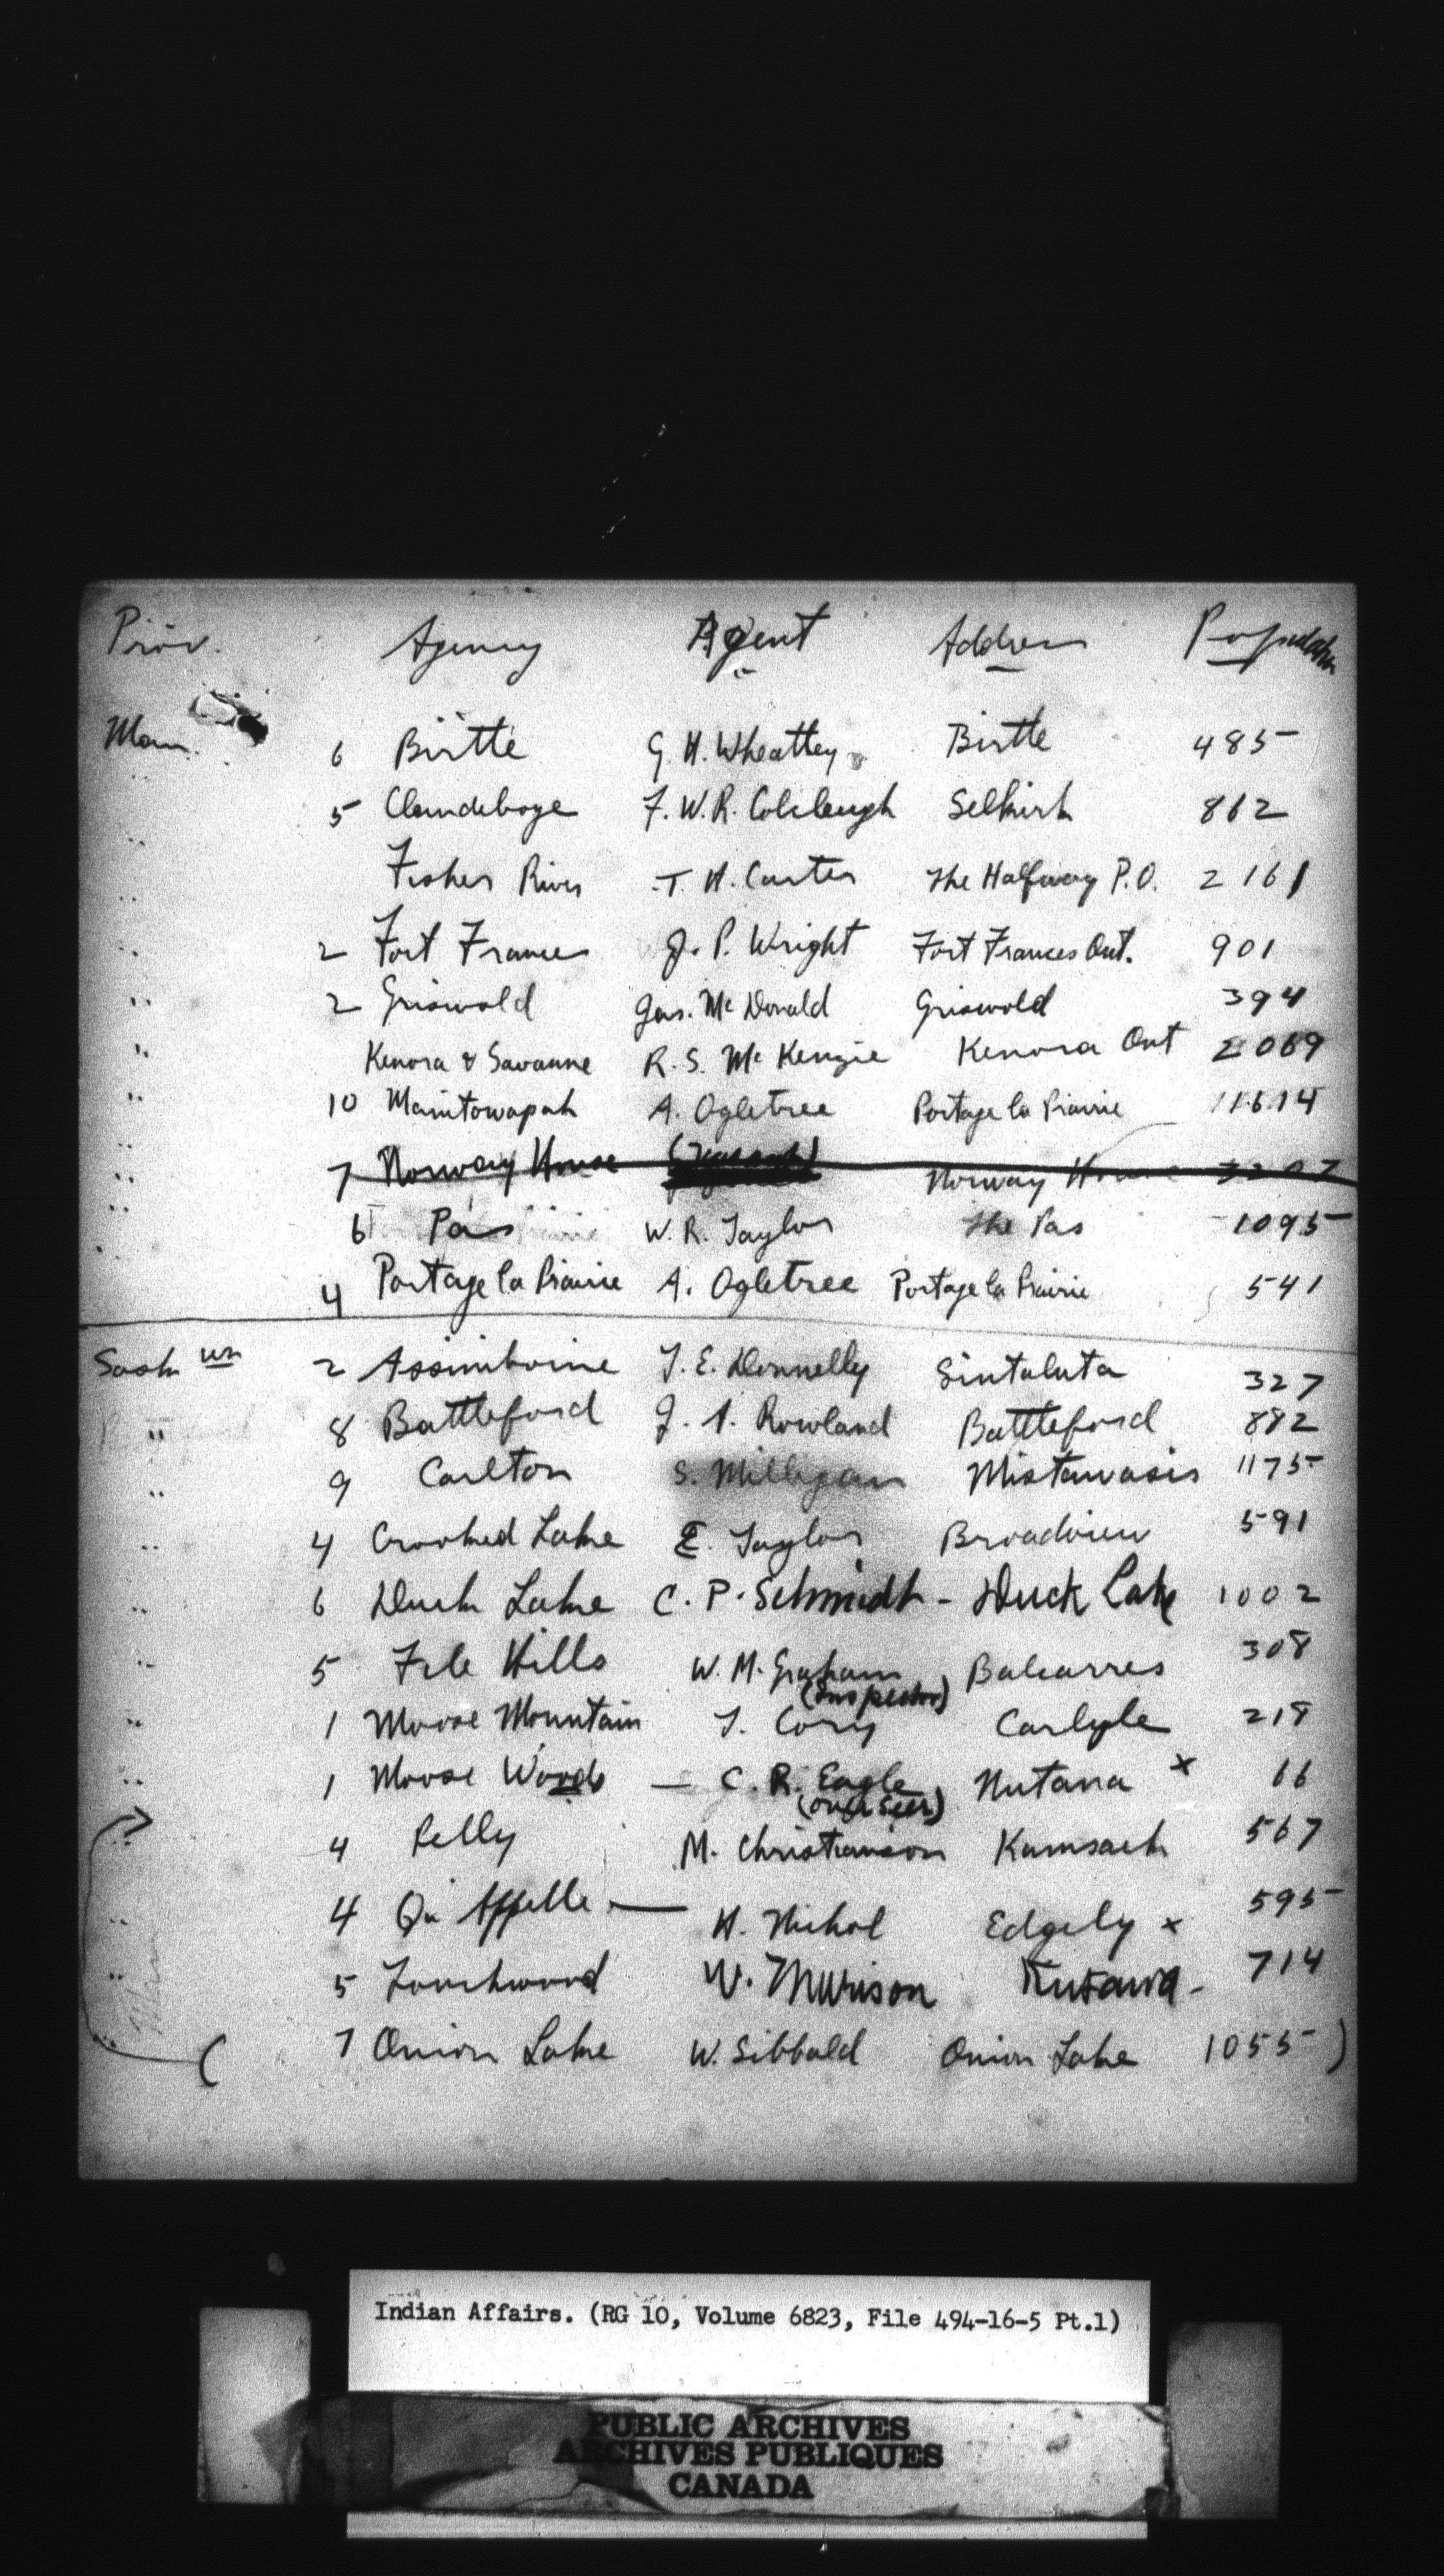 Prov. Agency Agent Address Population
Man. 6 Birtle G. H. Wheatley Birtle 485
" 5 Clandeboye F. W. R. Colcleugh Selkirk 862
" Fisher River T. H. Carter The Halfway P.O. 2161
" 2 Fort Frances J. P. Wright Fort Frances Ont. 901
" 2 Griswold Jas. McDonald Griswold 394
" Kenora & Savanne R. S. McKenzie Kenora Ont 2069
" 10 Manitowapah A. Ogletree Portage la Prairie
" 7 Norway House (Vacant) Norway House
" 6 Pas W. R. Taylor The Pas 1095
" 4 Portage la Prairie A. Ogletree Portage la Prairie 541
Sask 2 Assiniboine T. E. Donnelly Sintaluta 327
" 8 Battleford J. A. Rowland Battleford 882
" 9 Carlton S. Milligan Mistawasis 1175
" 4 Crooked Lake E. Taylor Broadview 591
" 6 Duck Lake C. P. Schmidt - Duck Lake 1002
" 5 File Hills W. M. Graham Balcarres 308
(Inspector)
" 1 Moose Mountain T. Cory Carlyle 218
" 1 Moose Woods — C. R. Eagle Nutana x 66
(overseer)
" 4 Pelly M. Christianson Kamsack 567
" 4 Qu'Appelle — H. Nichol Edgely x 595
" 5 Touchwood W. Murison Kutawa - 714
( 7 Onion Lake W. Sibbald Onion Lake 1055 )
Indian Affairs. (RG 10, Volume 6823, File 494-16-5 Pt.1)
PUBLIC ARCHIVES
ARCHIVES PUBLIQUES
CANADA